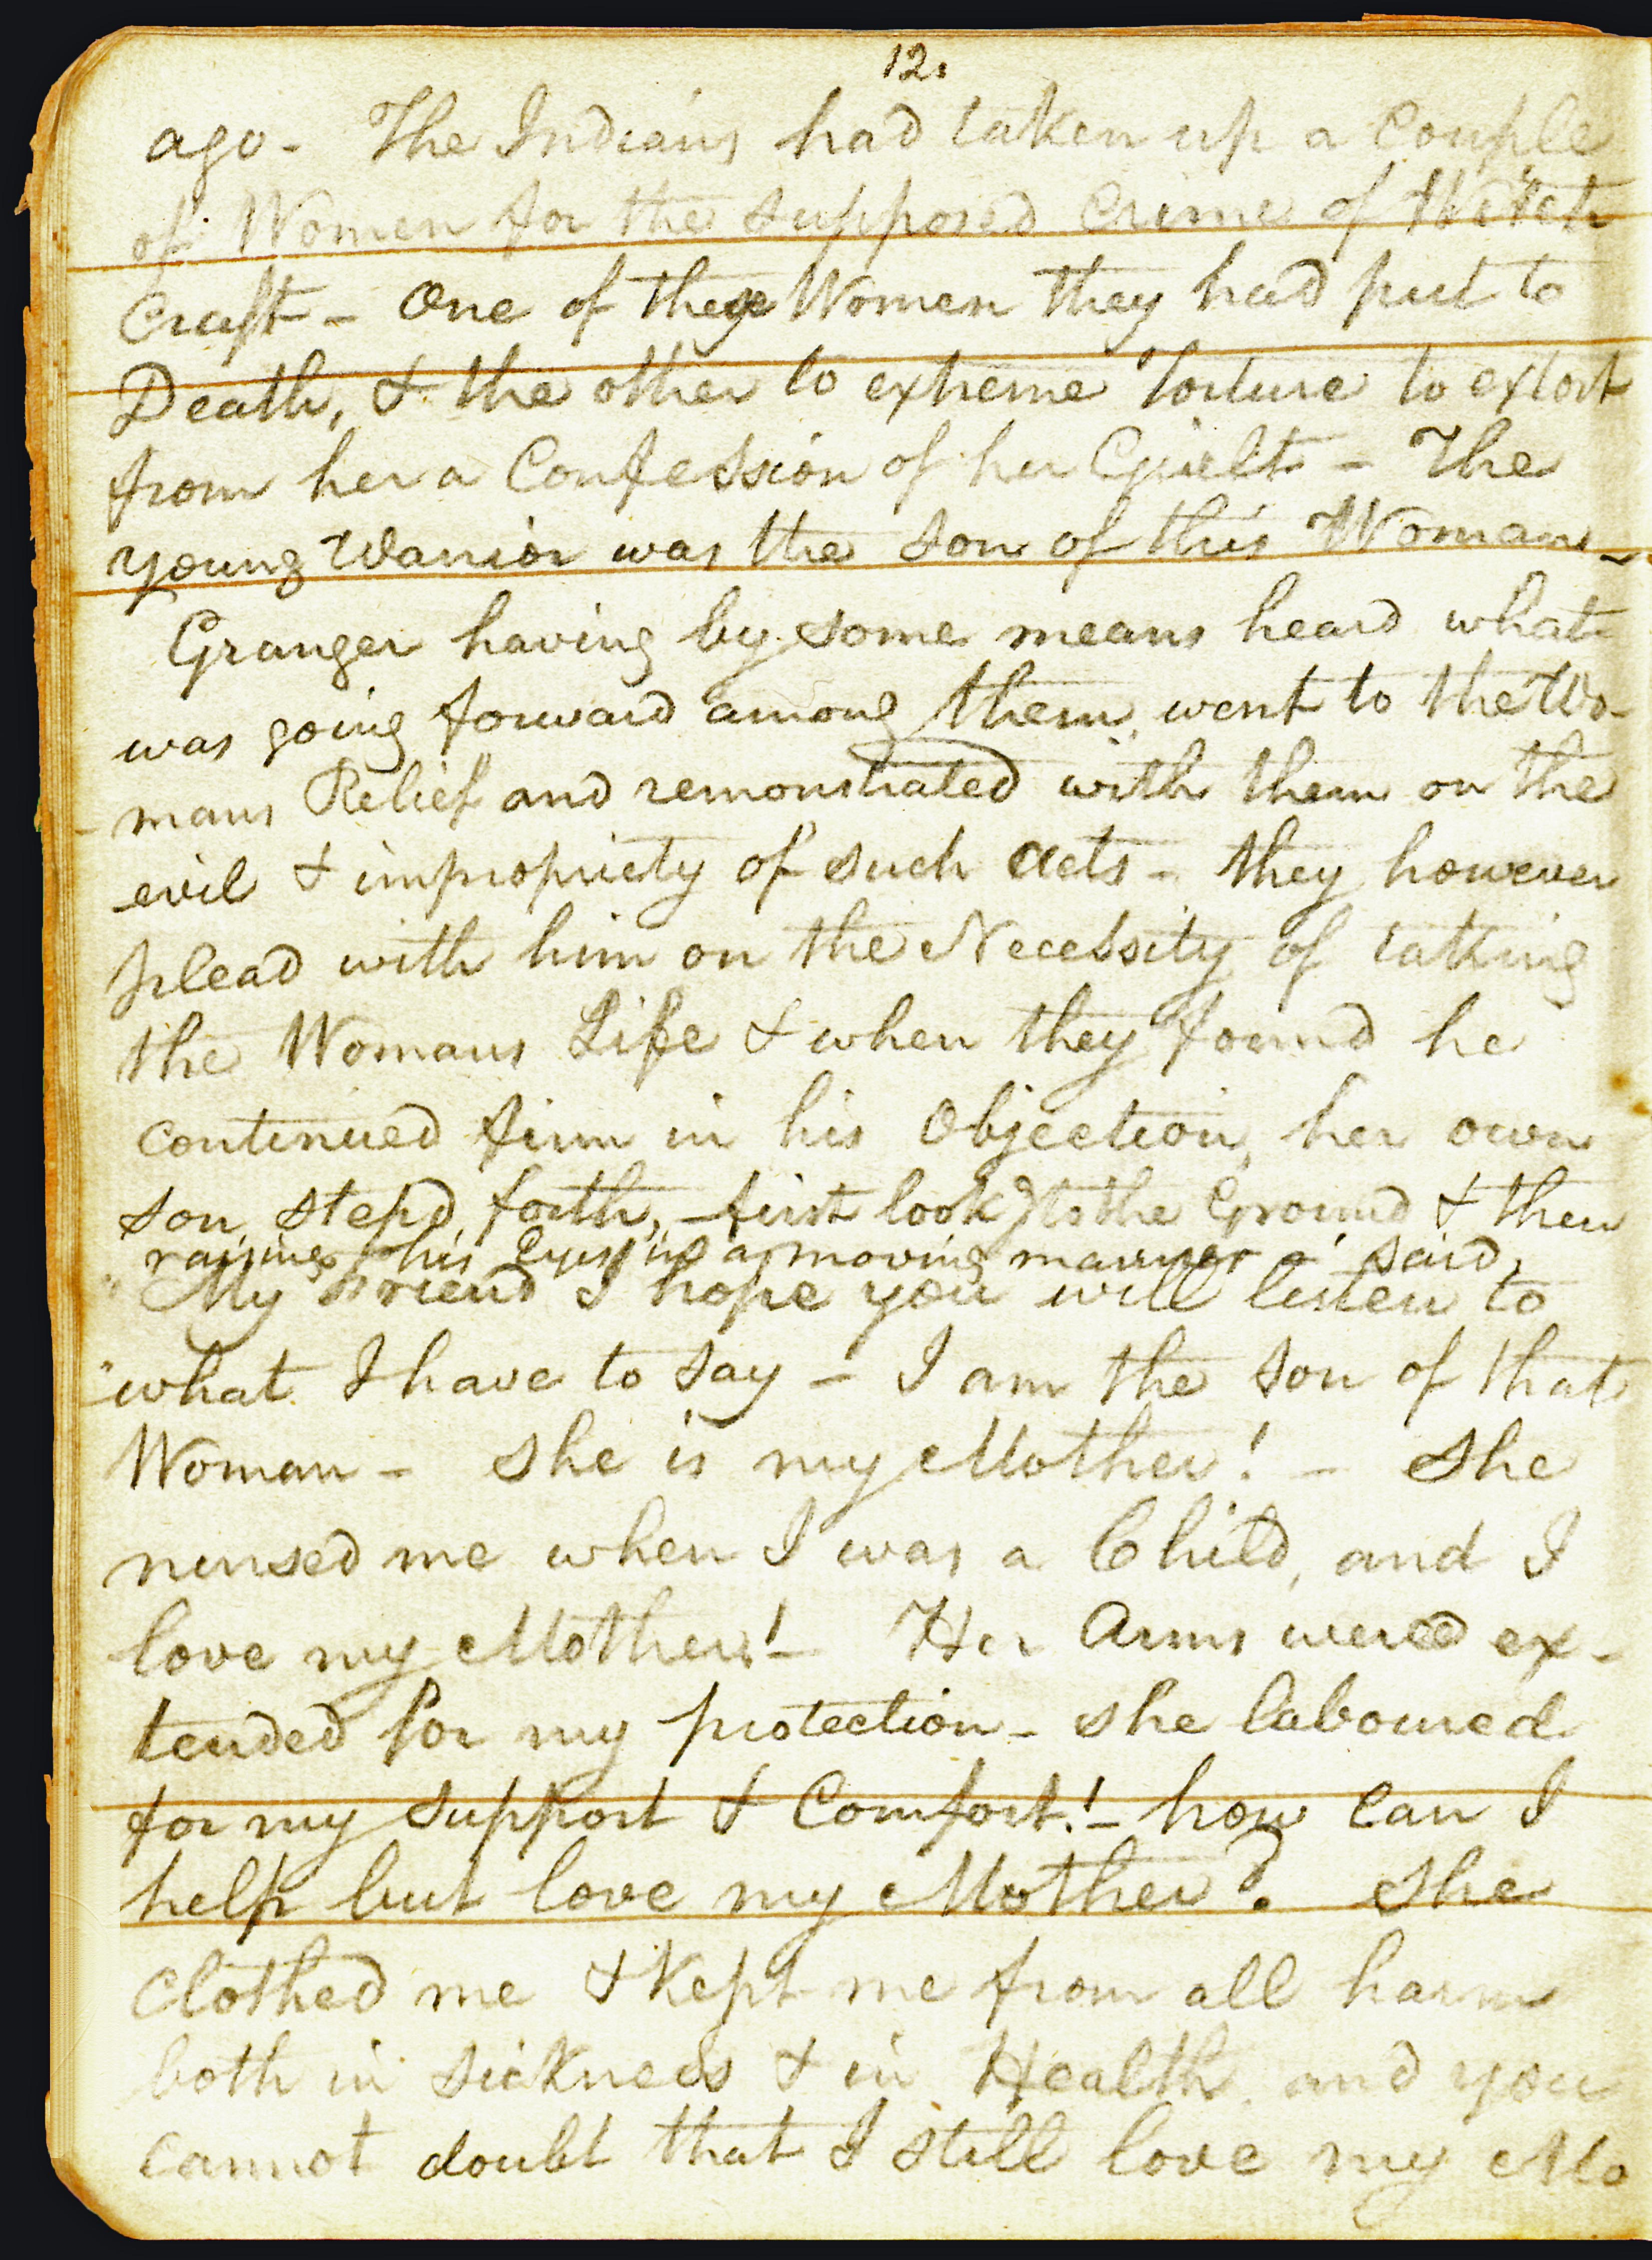 12.
ago - The Indians had taken up a Couple
of Women for the supposed Crime of Witch
Craft - One of these Women they had put to
Death, & the other to extreme torture to extort
from her a Confession of her Guilt - The
young Warrior was the Son of this Woman -
Granger having by some means heard what
was going forward among them, went to the Wo-
-mans Relief and remonstrated with them on the
evil & impropriety of such Acts - they however
plead with him on the Necessity of taking
the Womans Life & when they found he
continued firm in his Objection, her own
son stepd forth, - first look to the Ground & then
raising his Eyes in a moving manner said,
"My Friend I hope you will listen to
"what I have to say - I am the Son of that
Woman - She is my Mother! - She
nursed me when I was a Child, and I
love my Mother! - Her Arms were ex-
tended for my protection - she laboured
for my support & Comfort! - how can I
help but love my Mother? She
Clothed me & Kept me from all harm
both in Sickness & in Health and you
cannot doubt that I still love my Mo